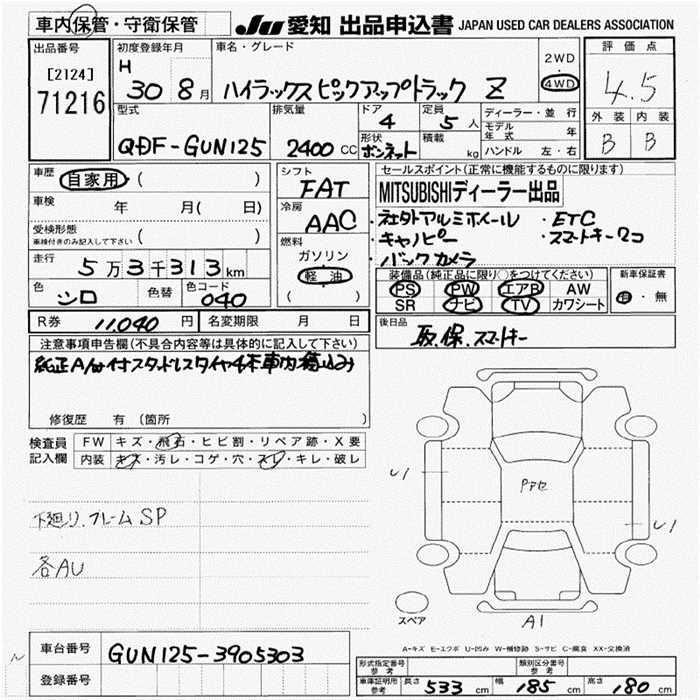 車内保管・守衛保管
JU 愛知 出品申込書 JAPAN USED CAR DEALERS ASSOCIATION
出品番号
[2124]
71216
初度登録年月
H 30 8月
車名・グレード
ハイラックスピックアップトラック Z
2WD
4WD
評価点
4.5
外装 内装
B B
型式
QDF-GUN125
排気量
2400 CC
ドア
4
定員
5 人
形状
ボンネット
積載
kg
ディーラー・並行
モデル年式 年
ハンドル 左・右
車歴
自家用 ( )
車検
年 月( 日)
受検形態
車検付きのみ記入して下さい ( )
走行
5万3千313km
色
シロ
色替
色コード
040
シフト
FAT
冷房
AAC
燃料
ガソリン
軽油
( )
セールスポイント(正常に機能するものに限ります)
MITSUBISHIディーラー出品
・社外アルミホイール ・ETC
・キャノピー ・スマートキー2コ
・バックカメラ
装備品(純正品に限り○をつけてください)
PS PW エアB AW
SR ナビ TV カワシート
新車保証書
有・無
R券 11,040 円
名変期限 月 日
後日品
取.保.スマートキー
注意事項申告欄(不具合内容等は具体的に記入して下さい)
純正A/W付スタッドレスタイヤ4本車内積込み
修復歴 有(箇所 )
検査員記入欄
FW キズ・飛石・ヒビ割・リペア跡・X要
内装 キズ・汚レ・コゲ・穴・スレ・キレ・破レ
下廻り.フレームSP
各AU
U1
Pアセ
U1
スペア
A1
A-キズ E-エクボ U-凹み W-補修跡 S-サビ C-腐食 XX-交換済
車台番号
GUN125-3905303
登録番号
形式指定番号 参考
類別区分番号 参考
車庫証明用 参考
長さ 533 cm 幅 185 cm 高さ 180 cm